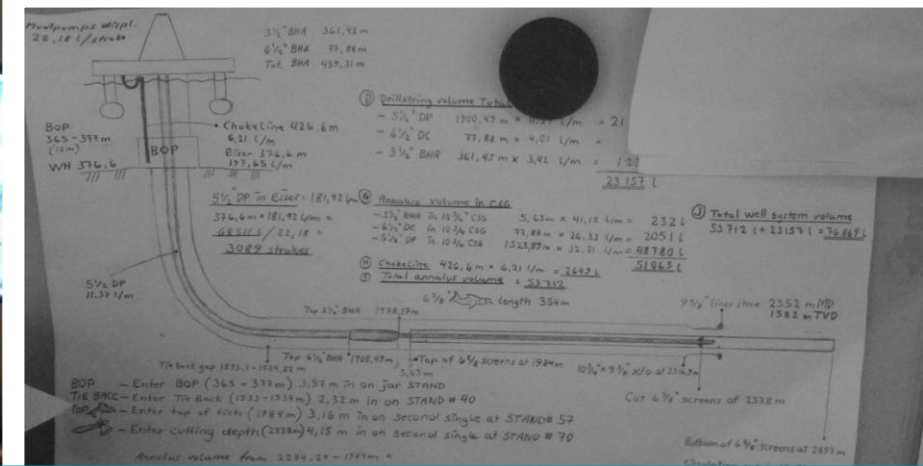 Mudpumps displ.
22,18 l/stroke
3½" BHA 361,43 m
6½" BHA 77,88 m
Tot. BHA 439,31 m
BOP
365-377m
(12m)
WH 376,6
BOP
Chokeline 426,6m
6,21 l/m
Rizer 376,6 m
197,65 l/m
5½" DP in Rizer: 181,92 lpm
376,6m × 181,92 lpm =
68511 l / 22,18 =
3089 strokes
Drillstring volume
- 5½" DP 1900,49 m ×
- 6½" DC 77,88 m × 4,01 l/m =
- 3½" BHA 361,43 m × 3,42 l/m =
23157 l
Annulus volume in CSG
-3½" BHA in 10¾" CSG 5,63m × 41,15 l/m = 232 l
-6½" DC in 10¾ CSG 77,88 m × 26,33 l/m = 2051 l
-5½" DP in 10¾ CSG 48780 l
51063 l
Chokeline 426,6m × 6,21 l/m = 2649 l
Total annulus volume = 53712
Ⓙ Total well system volume
53712 l + 23157 l = 76869 l
5½ DP
11,37 l/m
6⅝" length 354m
9⅝" liner shoe 2352 m MD
1582 m TVD
Top 3½" BHA 1978,37m
Top 6½" BHA 1900,49m
5,63m
Top of 6⅝ screens at 1984m
10¾" × 9⅝" x/o at
Tie back gap
Cut 6⅝" screens at 2338m
BOP - Enter BOP (365 - 377m) 3,57m in on jar STAND
TIE BACK - Enter Tie Back (1533-1534m) 2,32m in on STAND # 40
TOP - Enter top of fish (1984m) 3,16 m in on second single at STAND# 57
- Enter cutting depth (2338m) 4,15 m in on second single at STAND # 70
Bottom of 6⅝" screens at
Annulus volume from